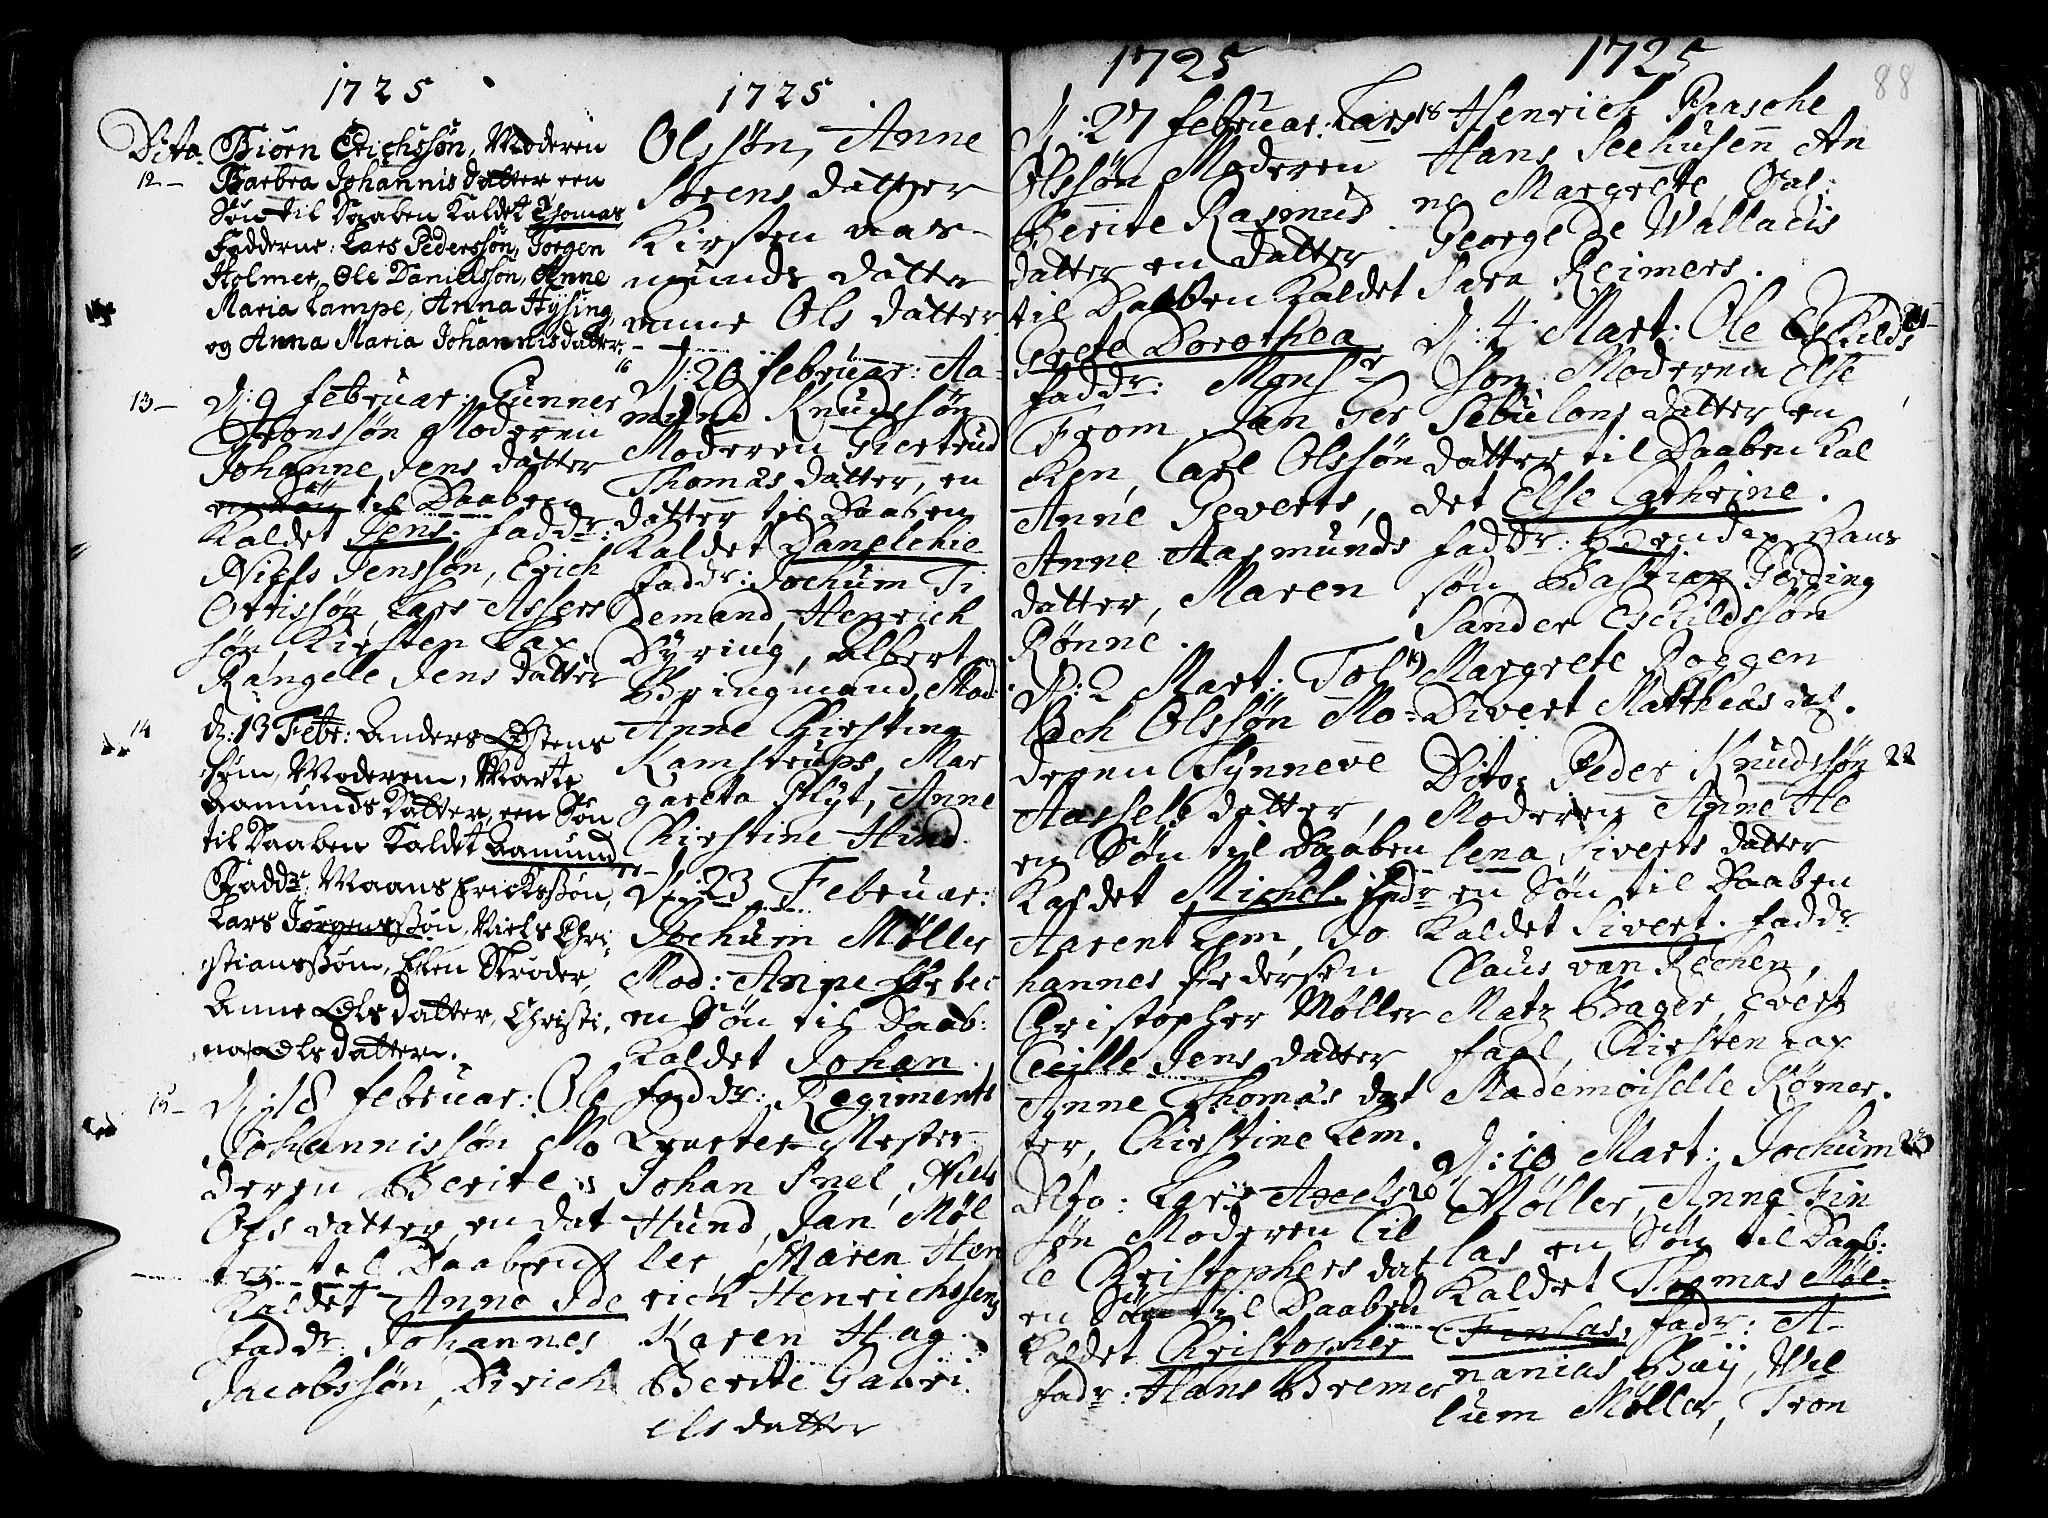 1725
Dito. Biørn Erichssøn, Moderen
12 - Barbra Johannis datter een
Søn til Daaben kaldet Thomas
Fadderne: Lars Pederssøn, Jørgen
Holmer, Ole Danielssøn, Anne
Maria Lampe, Anna Hysing,
og Anna Maria Johannisdatter,
13 - D: 9 februar: Gunner
Tronssøn Moderen
Johanne Jens datter
en Søn til Daaben
kaldet Jens. faddr:
Niels Jenssøn, Erich
Ottissøn, Lars Assers
søn, Kirsten Lax
Rangele Jens datter
14 d: 13 Febr: Anders
søn, Moderen, Marte
Aamunds datter, een Søn
til Daaben kaldet Aamund
Faddr: Maans Erickssøn,
Lars Jørgenssøn, Niels Chri
stianssøn, Elen Strøder,
Anne Ols datter, Christi,
na Ols datter.
15 - D: 18 februar: Ole
Johannissøn Mo
deren Berite
Ols datter en dat
ter til Daaben
kaldet Anne
faddr: Johannes
Jacobssøn, Dirich
1725
Olssøn, Anne
Sørens datter
Kirsten aas-
munds datter
anne Ols datter
16 D: 20 februar: Aa-
mund Knudssøn
Moderen Giertrud
Thomas datter, en
datter til Daaben
kaldet Danelchie
faddr: Jochum Ti
demand, Henrich
Dyring, Albert
Bringmand, Mad:
Anne Chirstine
Kamstrups, Mar
gareta Plyt, Anne
Chirstine Hind.
D: 23 Februar:
Jochum Møller
Mod: Anne
en Søn til Daab:
kaldet Johan.
faddr: Regiments
Qvarter Mester
Johan Snel, Niels
Hund, Jan Møl
ler, Maren Hen
rich Henrichssens
Karen Hag.
Berite Gabri.
els datter
1725
D: 27 februar: Lars 18
Olssøn Moderen
Berite Rasmus
datter en datter
til Daaben kaldet
Grete Dorothea
faddr: Monsr
From, Jan Ger
ken, Carl Olssøn
Anne Geverts,
Anne Aasmunds
datter, Maren
Rønne.
D: 2 Mart: Tol 19
lach Olssøn Mo-
deren Synneve
Hassels datter,
en Søn til Daaben
kaldet Michel. fadr
Harent Lem, Jo
hannes Pedersen
Christopher Møller
Cecille Jens datter
Anne Thomas dat
ter, Chirstine Lem.
Dito: Lars Axels 20
søn Moderen Cil
le Christophers dat
en Søn til Daaben
kaldet Christopher
fadr: Hans Bremer
1725
88
Henrich Paasche
Hans Seehusen An
ne Margrete,
George De Wallacis
Sara Reimers.
D: 4 Mart: Ole Eskilds 21
søn Moderen Else
Sebulons datter en
datter til Daaben kal
det Else Cathrine.
faddr: Hans
søn, Bastian Gerding
Sander Eskildssøn
Margrete Roggen
Divert Matthias dat.
Dito: Peder Knudssøn 22
Moderen Anne He
lena Siverts datter
en Søn til Daaben
kaldet Sivert. faddr
Claus van Rechen,
Matz Bager, Evert
fahl, Chirsten Lax
Mademoiselle Rømer.
D: 10 Mart: Jochum 23
Møller, Anne Fin
las en Søn til Daab:
kaldet Thomas Møl-
Finlas, fadr: A-
nanias Baÿ, Wil
lum Møller, Tron